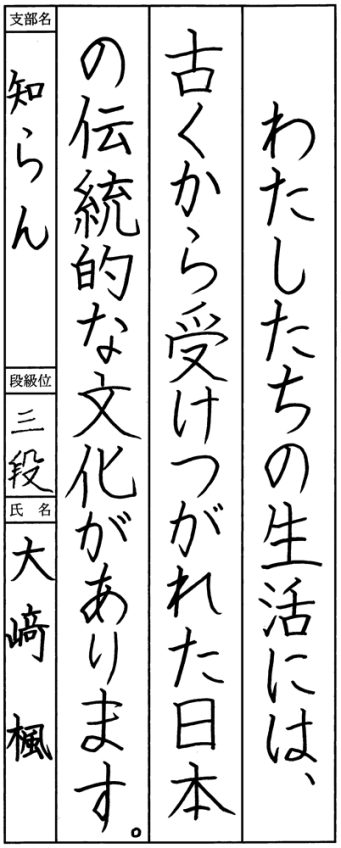 わたしたちの生活には、
古くから受けつがれた日本
の伝統的な文化があります。
支部名
知らん
段級位
三段
氏名
大﨑 楓